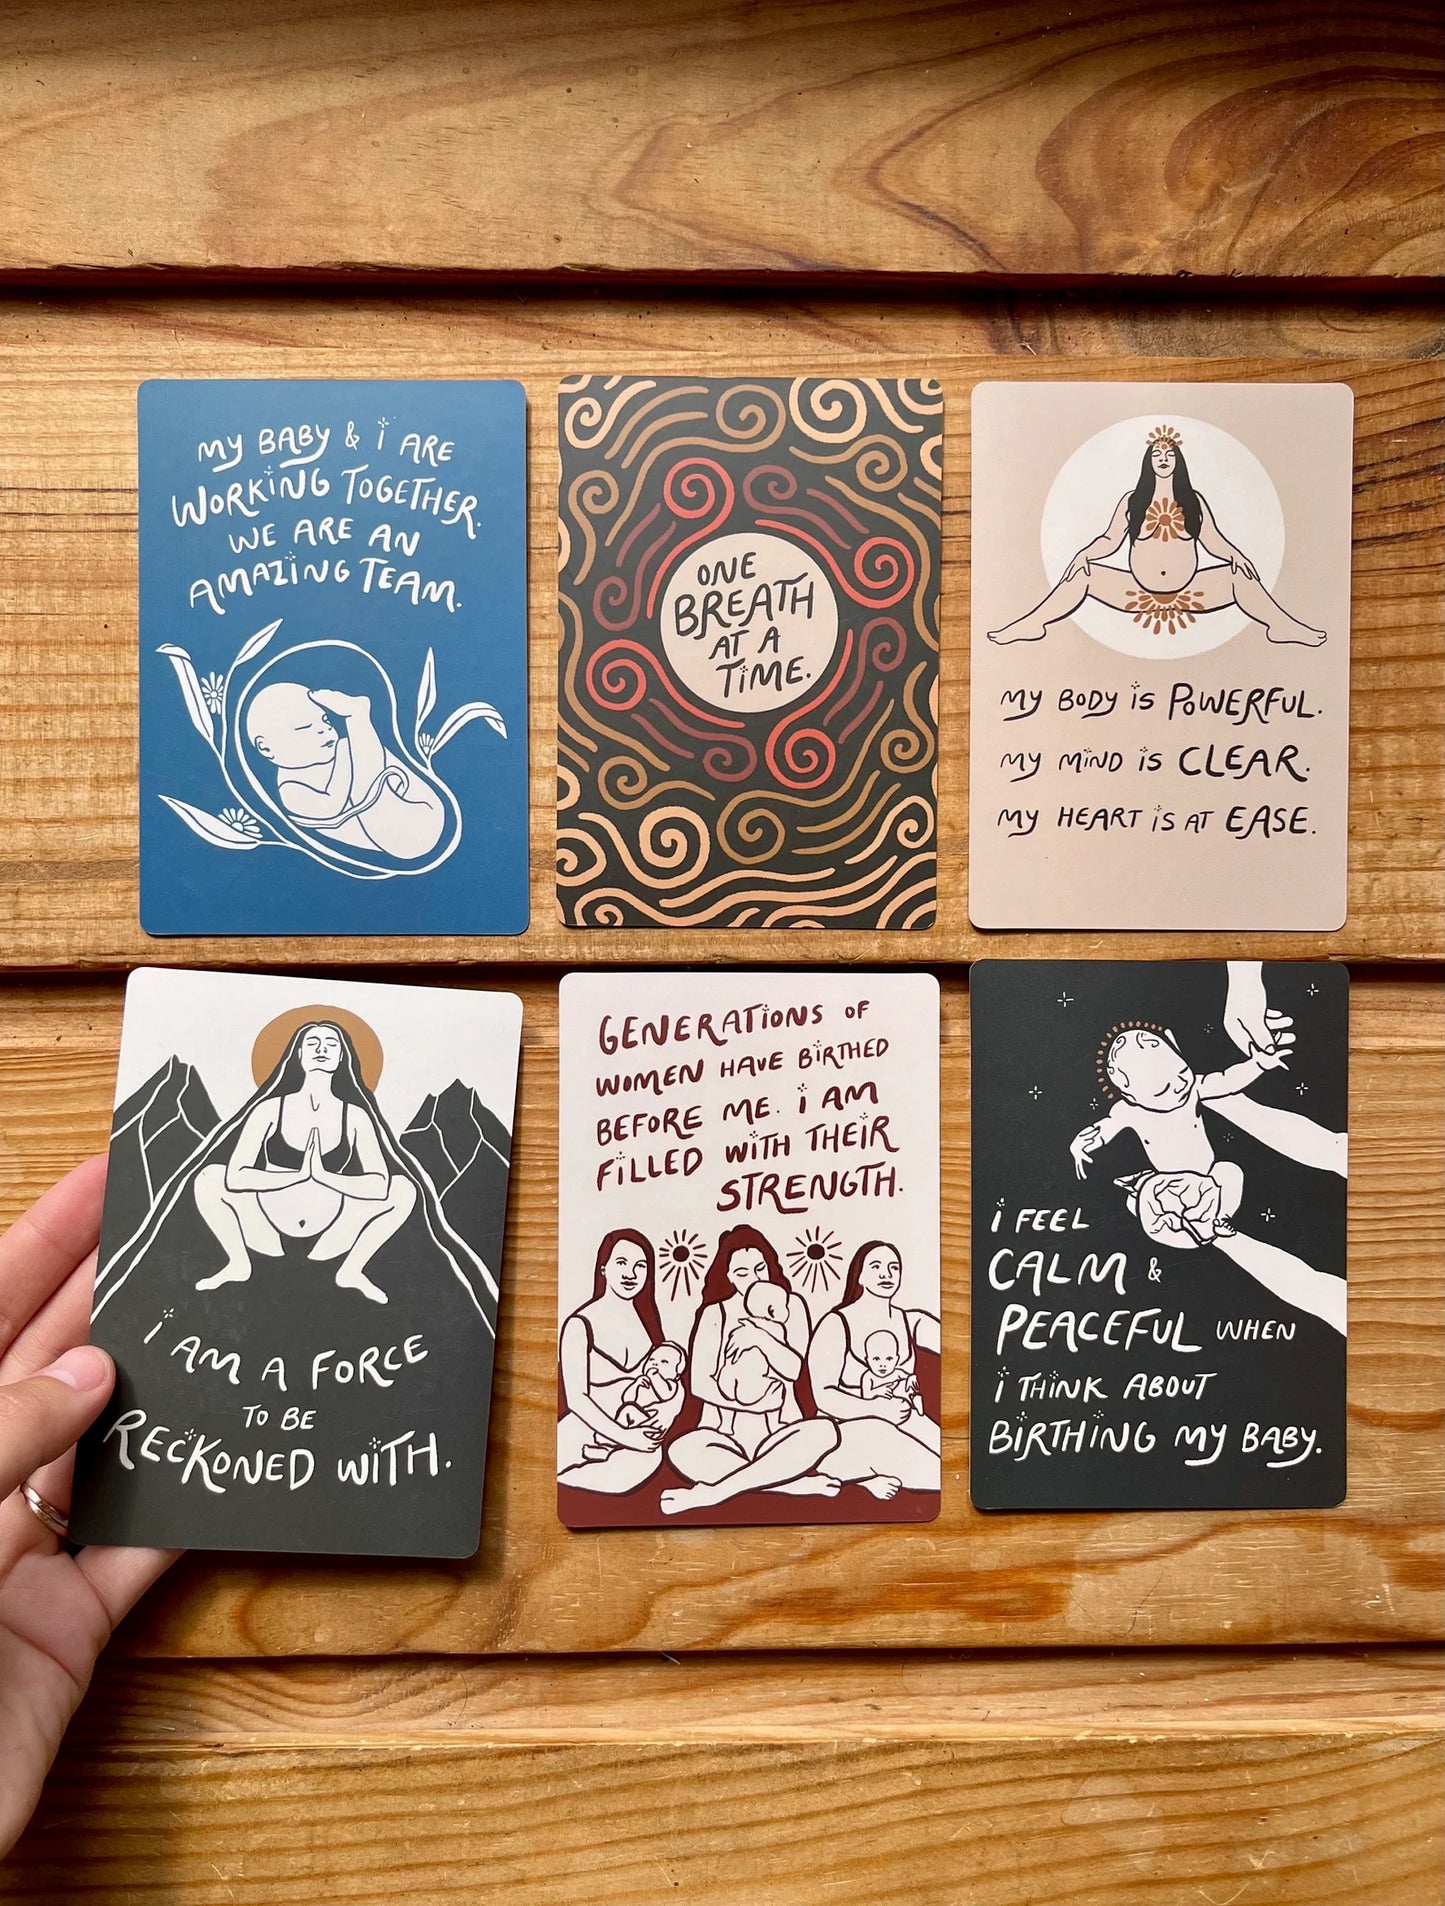 my BABY & i ARE
WORKiNG TOGETHER.
WE ARE AN
AMAZiNG TEAM.
ONE
BREATH
AT A
TiME.
my BODY is POWERFUL.
my MiND is CLEAR.
my HEART is AT EASE.
i AM A FORCE
TO BE
RECKONED WiTH.
GENERATiONS OF
WOMEN HAVE BiRTHED
BEFORE ME. i AM
FiLLED WiTH THEiR
STRENGTH.
i FEEL
CALM &
PEACEFUL WHEN
i THiNK ABOUT
BiRTHiNG my BABY.